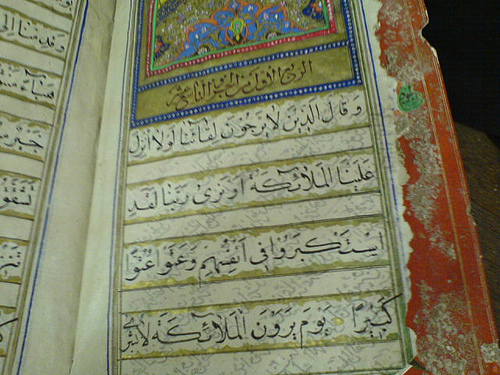 الربع الاول من الجزء التاسع عشر
وَقَالَ الَّذِينَ لَا يَرْجُونَ لِقَاءَنَا لَوْلَا اُنْزِلَ
عَلَيْنَا الْمَلَائِكَةُ اَوْ نَرٰى رَبَّنَا لَقَدِ
اسْتَكْبَرُوا فِي اَنْفُسِهِمْ وَعَتَوْا عُتُوًّا
كَبِيرًا يَوْمَ يَرَوْنَ الْمَلَائِكَةَ لَا بُشْرٰى
وَقَدِمْنَا اِلٰى
هَبَاءً
خَيْرٌ
تَشَقَّقُ